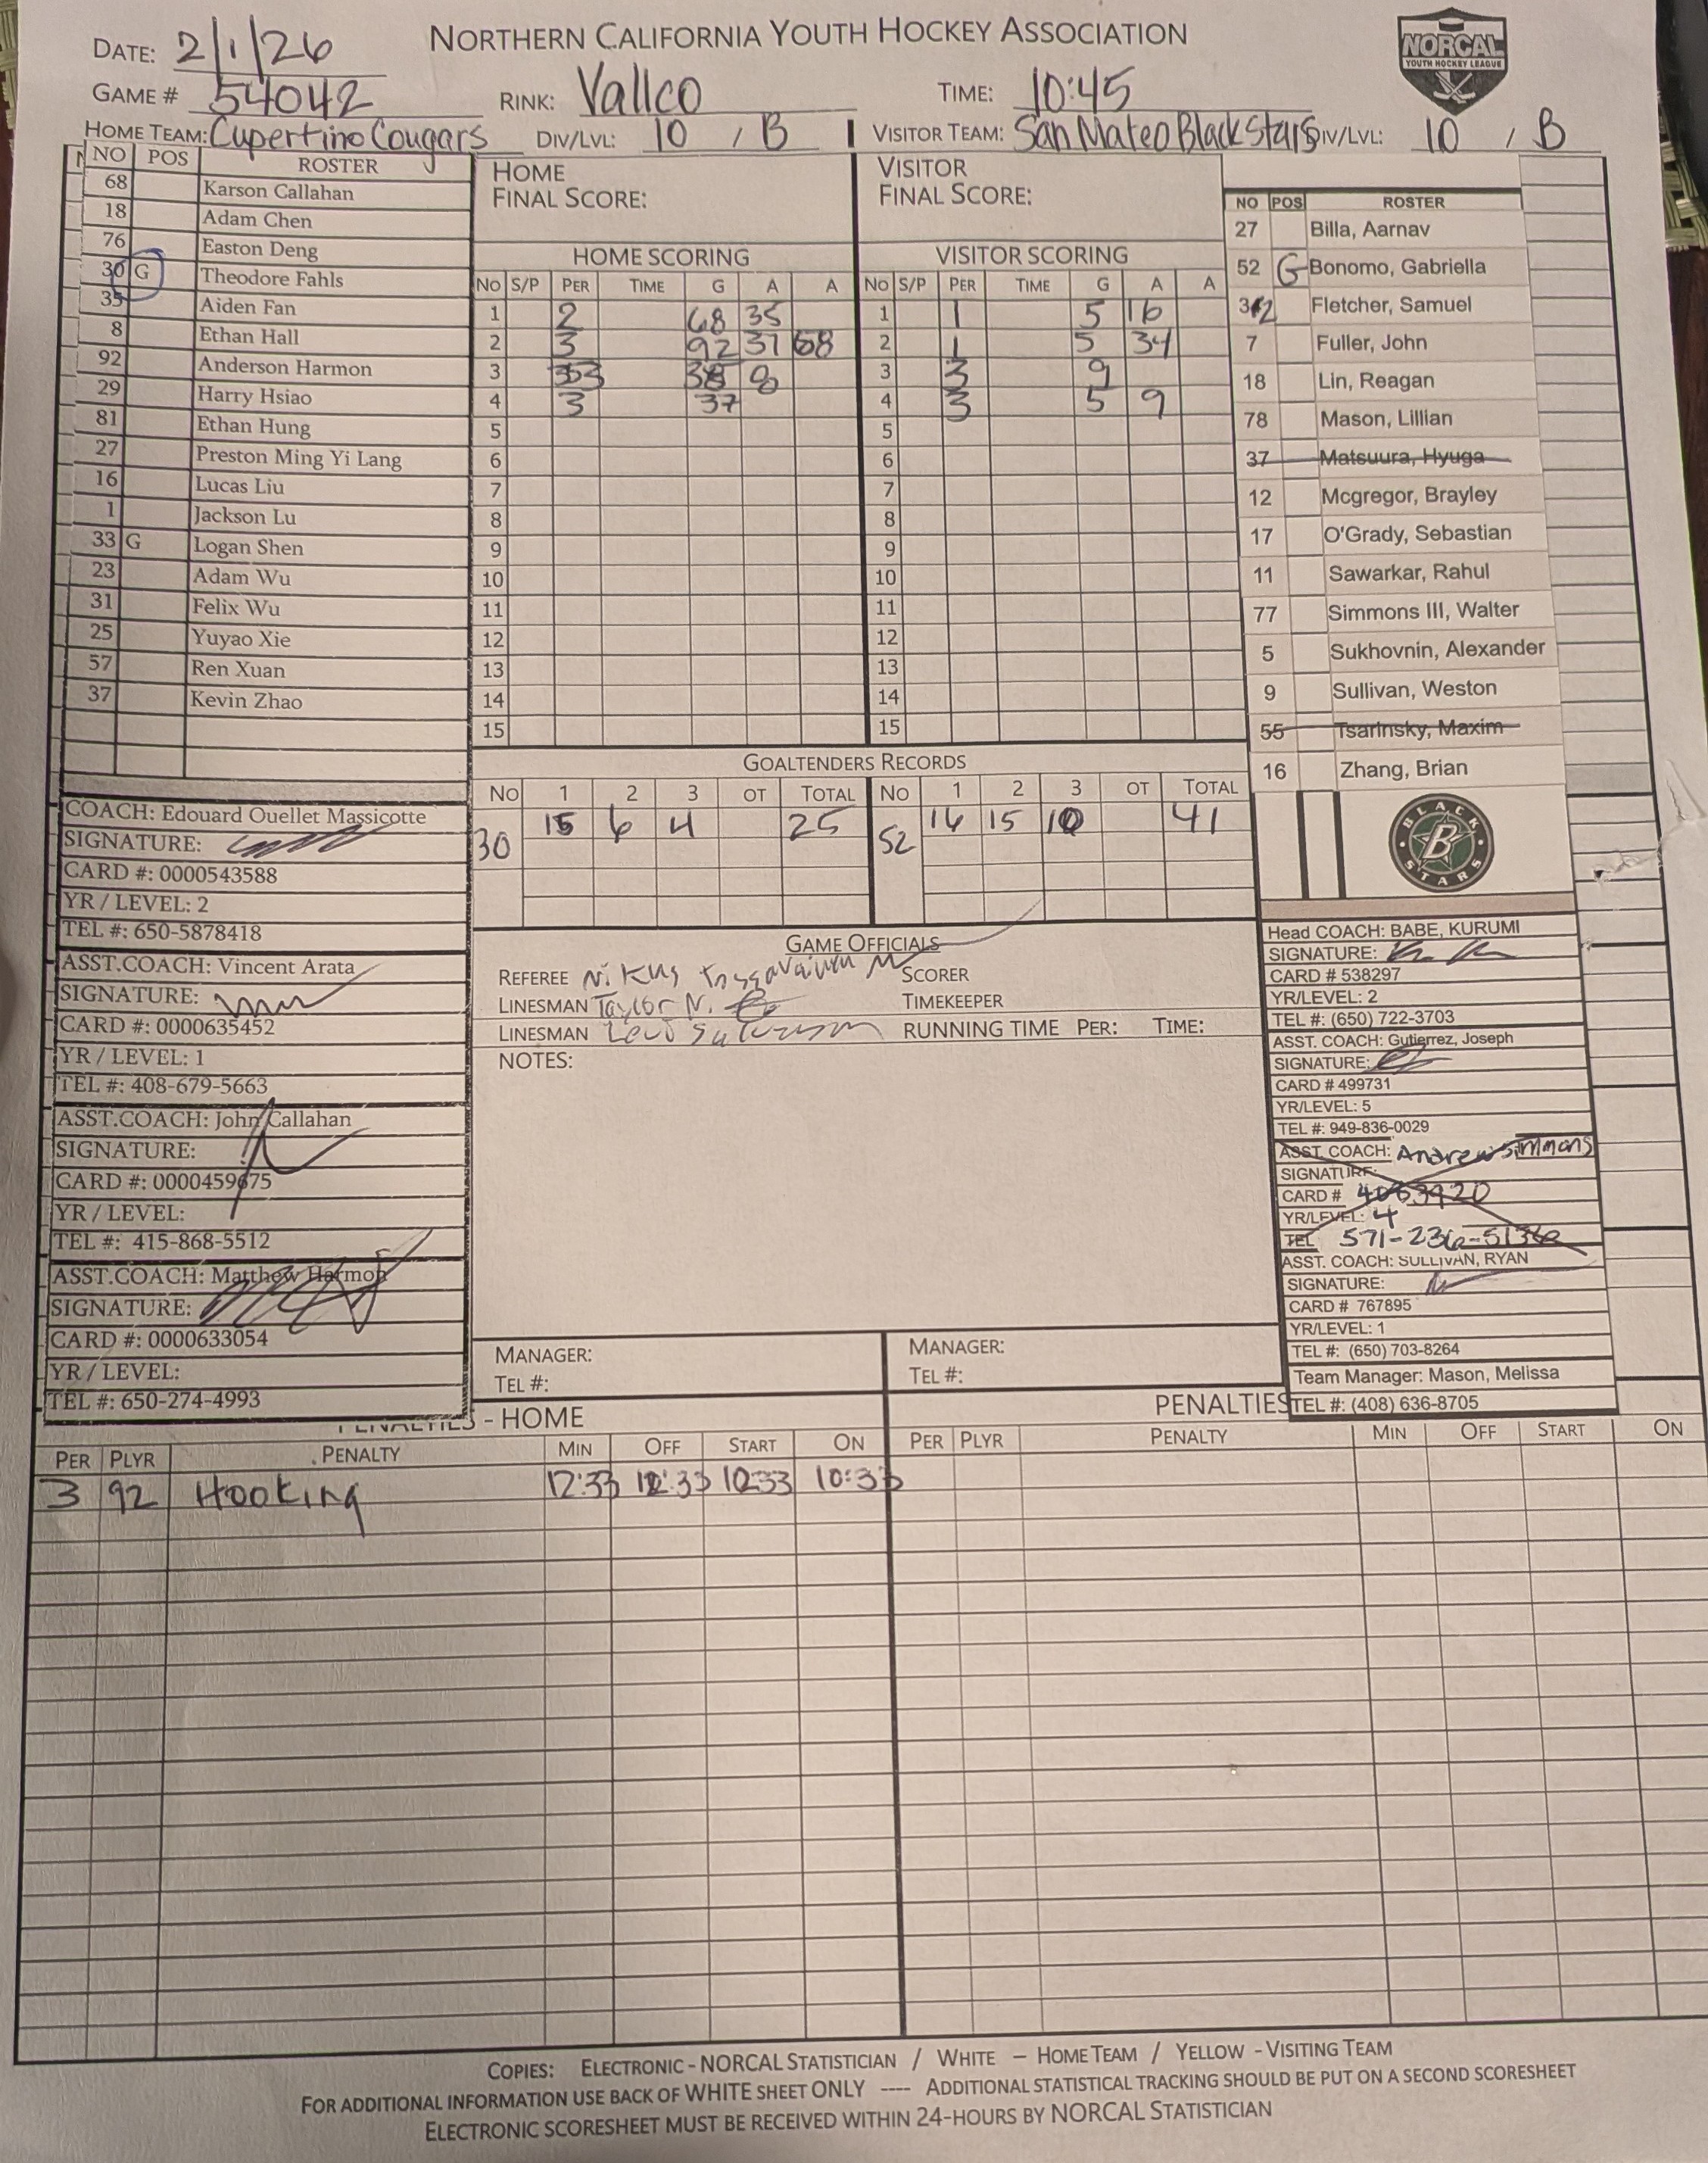 NORTHERN CALIFORNIA YOUTH HOCKEY ASSOCIATION
NORCAL
YOUTH HOCKEY LEAGUE
DATE: 2/1/26
GAME # 54042 RINK: Vallco TIME: 10:45
HOME TEAM: Cupertino Cougars DIV/LVL: 10 / B VISITOR TEAM: San Mateo Black Stars DIV/LVL: 10 / B
NO POS ROSTER
68 Karson Callahan
18 Adam Chen
76 Easton Deng
30 G Theodore Fahls
35 Aiden Fan
8 Ethan Hall
92 Anderson Harmon
29 Harry Hsiao
81 Ethan Hung
27 Preston Ming Yi Lang
16 Lucas Liu
1 Jackson Lu
33 G Logan Shen
23 Adam Wu
31 Felix Wu
25 Yuyao Xie
57 Ren Xuan
37 Kevin Zhao
COACH: Edouard Ouellet Massicotte
SIGNATURE:
CARD #: 0000543588
YR / LEVEL: 2
TEL #: 650-5878418
ASST.COACH: Vincent Arata
SIGNATURE:
CARD #: 0000635452
YR / LEVEL: 1
TEL #: 408-679-5663
ASST.COACH: John Callahan
SIGNATURE:
CARD #: 0000459675
YR / LEVEL:
TEL #: 415-868-5512
ASST.COACH: Matthew Harmon
SIGNATURE:
CARD #: 0000633054
YR / LEVEL:
TEL #: 650-274-4993
HOME
FINAL SCORE:
HOME SCORING
NO S/P PER TIME G A A
1 2 68 35
2 3 92 37 68
3 3 38 8
4 3 37
5
6
7
8
9
10
11
12
13
14
15
VISITOR
FINAL SCORE:
VISITOR SCORING
NO S/P PER TIME G A A
1 1 5 16
2 1 5 34
3 3 9
4 3 5 9
5
6
7
8
9
10
11
12
13
14
15
GOALTENDERS RECORDS
NO 1 2 3 OT TOTAL NO 1 2 3 OT TOTAL
30 15 6 4 25 52 16 15 10 41
GAME OFFICIALS
REFEREE SCORER
LINESMAN Taylor N. TIMEKEEPER
LINESMAN RUNNING TIME PER: TIME:
NOTES:
MANAGER: MANAGER:
TEL #: TEL #:
NO POS ROSTER
27 Billa, Aarnav
52 G Bonomo, Gabriella
32 Fletcher, Samuel
7 Fuller, John
18 Lin, Reagan
78 Mason, Lillian
37 Matsuura, Hyuga
12 Mcgregor, Brayley
17 O'Grady, Sebastian
11 Sawarkar, Rahul
77 Simmons III, Walter
5 Sukhovnin, Alexander
9 Sullivan, Weston
55 Tsarinsky, Maxim
16 Zhang, Brian
BLACK
B
STARS
Head COACH: BABE, KURUMI
SIGNATURE:
CARD # 538297
YR/LEVEL: 2
TEL #: (650) 722-3703
ASST. COACH: Gutierrez, Joseph
SIGNATURE:
CARD # 499731
YR/LEVEL: 5
TEL #: 949-836-0029
ASST. COACH: Andrew Simmons
SIGNATURE:
CARD # 4083920
YR/LEVEL: 4
TEL 571-236-5136
ASST. COACH: SULLIVAN, RYAN
SIGNATURE:
CARD # 767895
YR/LEVEL: 1
TEL #: (650) 703-8264
Team Manager: Mason, Melissa
TEL #: (408) 636-8705
PENALTIES - HOME PENALTIES
PER PLYR PENALTY MIN OFF START ON PER PLYR PENALTY MIN OFF START ON
3 92 Hooking 12:33 12:33 10:33 10:33
COPIES: ELECTRONIC - NORCAL STATISTICIAN / WHITE – HOME TEAM / YELLOW - VISITING TEAM
FOR ADDITIONAL INFORMATION USE BACK OF WHITE SHEET ONLY ---- ADDITIONAL STATISTICAL TRACKING SHOULD BE PUT ON A SECOND SCORESHEET
ELECTRONIC SCORESHEET MUST BE RECEIVED WITHIN 24-HOURS BY NORCAL STATISTICIAN